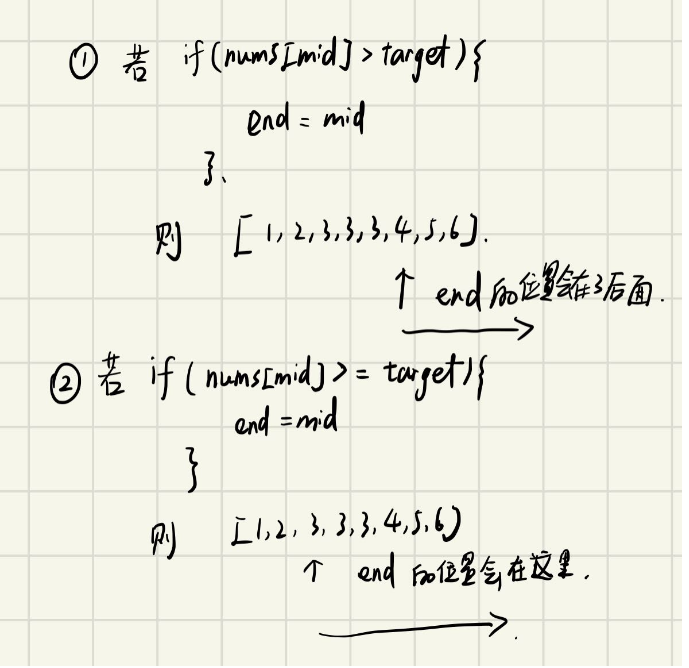 ① 若 if(nums[mid]>target){
end = mid
}、
则 [1,2,3,3,3,4,5,6].
↑ end 的位置会在3后面.
② 若 if(nums[mid]>=target){
end=mid
}
则 [1,2,3,3,3,4,5,6)
↑ end 的位置会在这里.